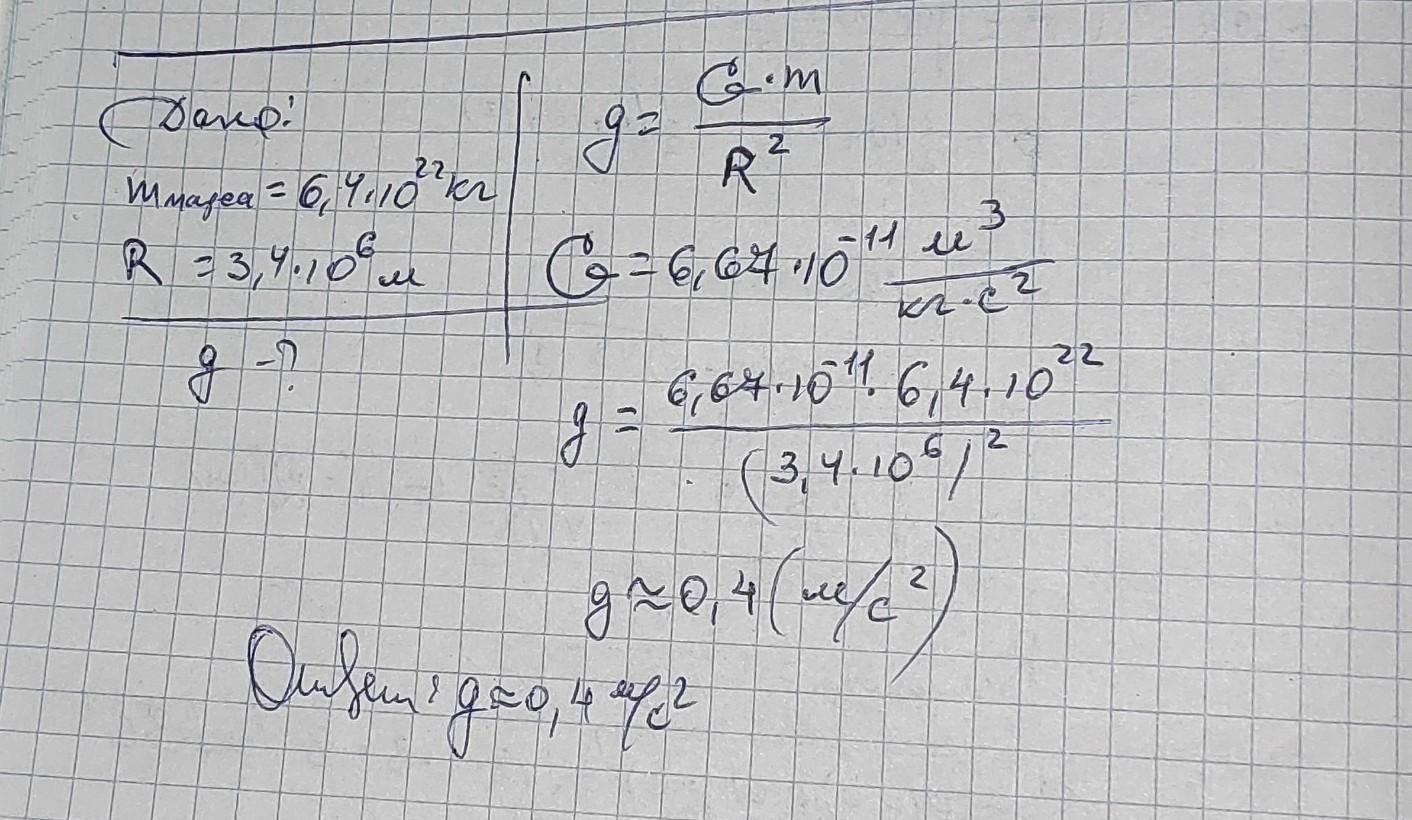 Дано:
m марса = 6,4·10²² кг
R = 3,4·10⁶ м
g - ?
g = G·m / R²
G = 6,67·10⁻¹¹ м³ / кг·с²
g = 6,67·10⁻¹¹ · 6,4·10²² / (3,4·10⁶)²
g ≈ 0,4 (м/с²)
Ответ: g ≈ 0,4 м/с²